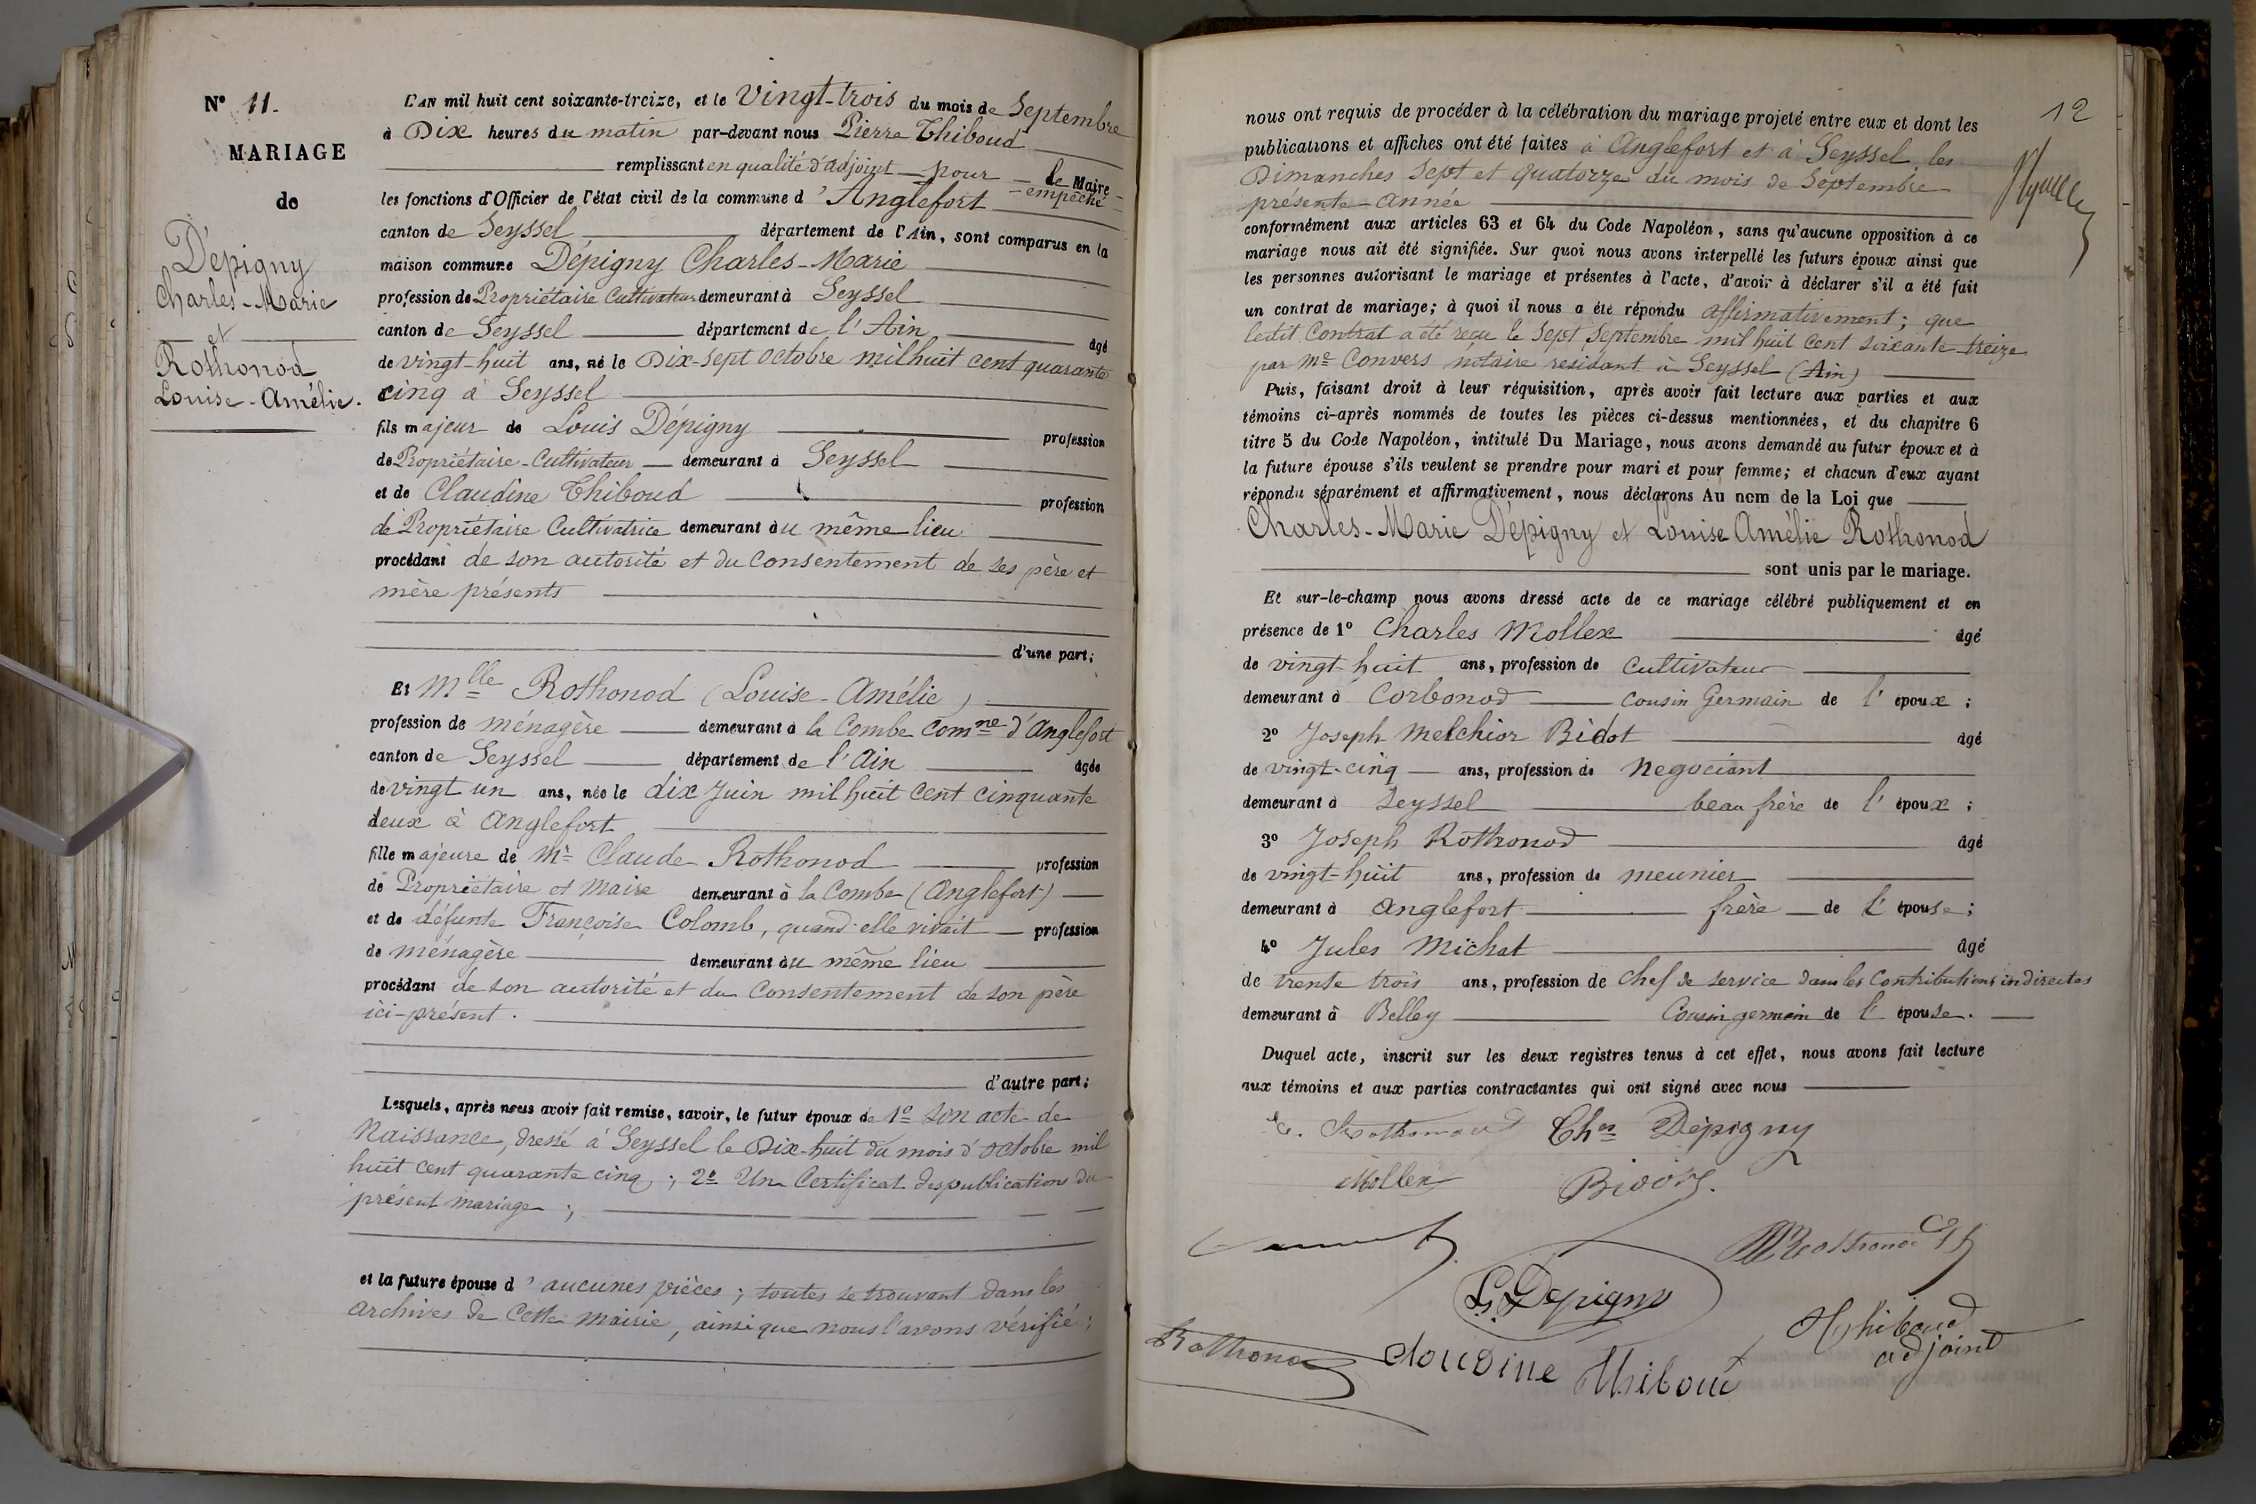 N° 11.
MARIAGE
de
Dépigny
Charles-Marie
et
Rothonod
Louise-Amélie.
L'AN mil huit cent soixante-treize, et le vingt-trois du mois de Septembre
à Dix heures du matin par-devant nous Pierre Thiboud
remplissant en qualité d'adjoint pour le Maire empêché
les fonctions d'Officier de l'état civil de la commune d'Anglefort
canton de Seyssel département de l'Ain, sont comparus en la
maison commune Dépigny Charles-Marie
profession de Propriétaire Cultivateur demeurant à Seyssel
canton de Seyssel département de l'Ain âgé
de vingt-huit ans, né le Dix-sept octobre mil huit cent quarante
cinq à Seyssel
fils majeur de Louis Dépigny profession
de Propriétaire-Cultivateur demeurant à Seyssel
et de Claudine Thiboud profession
de Propriétaire Cultivatrice demeurant au même lieu
procédant de son autorité et du consentement de ses père et
mère présents
d'une part;
Et Mlle Rothonod (Louise-Amélie)
profession de ménagère demeurant à la Combe comne d'Anglefort
canton de Seyssel département de l'Ain âgée
de vingt un ans, née le dix Juin mil huit cent cinquante
deux à Anglefort
fille majeure de Mr Claude Rothonod profession
de Propriétaire et Maire demeurant à la Combe (Anglefort)
et de défunte Françoise Colomb, quand elle vivait profession
de ménagère demeurant au même lieu
procédant de son autorité et du Consentement de son père
ici-présent.
d'autre part;
Lesquels, après nous avoir fait remise, savoir, le futur époux de 1° son acte de
Naissance, dressé à Seyssel le Dix-huit du mois d'octobre mil
huit cent quarante cinq; 2° Un Certificat des publications du
présent mariage;
et la future épouse d'aucunes pièces; toutes se trouvant dans les
archives de cette Mairie, ainsi que nous l'avons vérifié;
12
nous ont requis de procéder à la célébration du mariage projeté entre eux et dont les
publications et affiches ont été faites à Anglefort et à Seyssel les
Dimanches sept et quatorze du mois de Septembre
présente année
conformément aux articles 63 et 64 du Code Napoléon, sans qu'aucune opposition à ce
mariage nous ait été signifiée. Sur quoi nous avons interpellé les futurs époux ainsi que
les personnes autorisant le mariage et présentes à l'acte, d'avoir à déclarer s'il a été fait
un contrat de mariage; à quoi il nous a été répondu affirmativement; que
ledit Contrat a été reçu le sept septembre mil huit cent soixante-treize
par Me Convers notaire residant à Seyssel (Ain)
Puis, faisant droit à leur réquisition, après avoir fait lecture aux parties et aux
témoins ci-après nommés de toutes les pièces ci-dessus mentionnées, et du chapitre 6
titre 5 du Code Napoléon, intitulé Du Mariage, nous avons demandé au futur époux et à
la future épouse s'ils veulent se prendre pour mari et pour femme; et chacun d'eux ayant
répondu séparément et affirmativement, nous déclarons Au nom de la Loi que
Charles-Marie Dépigny et Louise Amélie Rothonod
sont unis par le mariage.
Et sur-le-champ nous avons dressé acte de ce mariage célébré publiquement et en
présence de 1° Charles Mollex âgé
de vingt-huit ans, profession de cultivateur
demeurant à Corbonod cousin Germain de l'époux;
2° Joseph Melchior Bidot âgé
de vingt-cinq ans, profession de Negociant
demeurant à Seyssel beau frère de l'époux;
3° Joseph Rothonod âgé
de vingt-huit ans, profession de meunier
demeurant à Anglefort frère de l'épouse;
4° Jules Michat âgé
de trente trois ans, profession de chef de service dans les Contributions indirectes
demeurant à Belley Cousin germain de l'épouse.
Duquel acte, inscrit sur les deux registres tenus à cet effet, nous avons fait lecture
aux témoins et aux parties contractantes qui ont signé avec nous
Chas Dépigny
Mollex
L. Depigny
Rothonod
Claudine Thiboud
Thiboud
adjoint